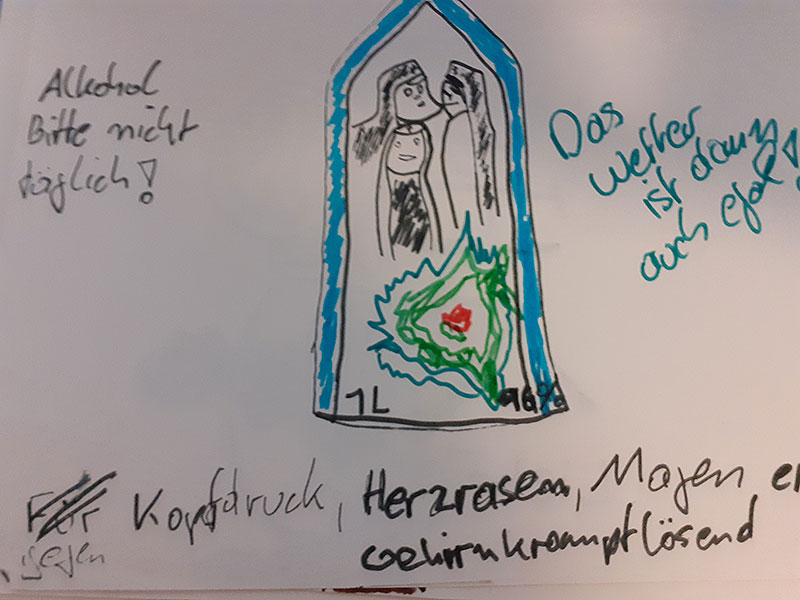 Alkohol
Bitte nicht
täglich!
Das
Wetter
ist dann
auch egal!
1L 96%
Für Kopfdruck, Herzrasen, Magen
gegen Gehirnkrampflösend